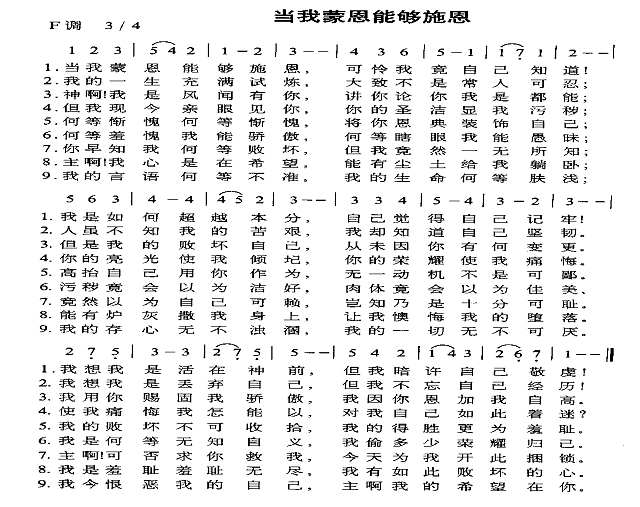 当我蒙恩能够施恩
F 调 3/4
1 2 3 | 5 4 2 | 1 — 2 | 3 — — | 4 3 6 | 5 — 1 | 1 7 1 | 2 — — |
1.当我蒙恩能够施恩， 可怜我竟自己知道！
2.我的一生充满试炼， 大致不是常人可忍；
3.神啊！我是风闻有你， 讲你论你我是都能；
4.但我现今亲眼见你， 你的圣洁显我污秽；
5.何等惭愧何等惭愧， 将你恩典装饰自己；
6.何等羞愧我能骄傲， 何等瞎眼我能愚昧；
7.你早知我何等败坏， 但我竟然一无所知；
8.主啊！我心是在希望， 能有尘土给我躺卧；
9.我的言语何等不准， 我的生命何等肤浅；
5 6 3 | 4 — 4 | 4 5 2 | 3 — — | 2 3 4 | 3 — 1 | 2 1 2 | 3 — — |
1.我是如何超越本分， 自己觉得自己记牢！
2.人虽不知我的苦艰， 我却知道自己坚韧。
3.但是我的败坏自己， 从未因你有何变更。
4.你的亮光使我倾圮， 你的荣耀使我痛悔。
5.高抬自己用你作为， 无一动机不是可鄙。
6.污秽竟会以为洁好， 肉体竟会以为佳美、
7.竟然以为自己可赖， 岂知乃是十分可耻。
8.能有炉灰撒我身上， 让我懊悔我的堕落。
9.我的存心无不浊溷， 我的一切无不可厌。
2 7 5 | 3 — 3 | 2 7 5 | 5 — — | 5 4 2 | 1 3 4 | 2 6 7 | 1 — — ‖
1.我想我是活在神前， 但我暗许自己敬虔！
2.我想我是丢弃自己， 但我不忘自己经历！
3.我用你赐固我骄傲， 我因你恩加我自高。
4.使我痛悔我怎能以， 对我自己如此着迷？
5.我的败坏不可收拾， 我的得胜更为羞耻。
6.我是何等无知自义， 我偷多少荣耀归己。
7.主啊！可否求你救我， 今天为我开此捆锁。
8.我是羞耻羞耻无尽， 我有如此败坏的心。
9.我今恨恶我的自己， 主啊我的希望在你。